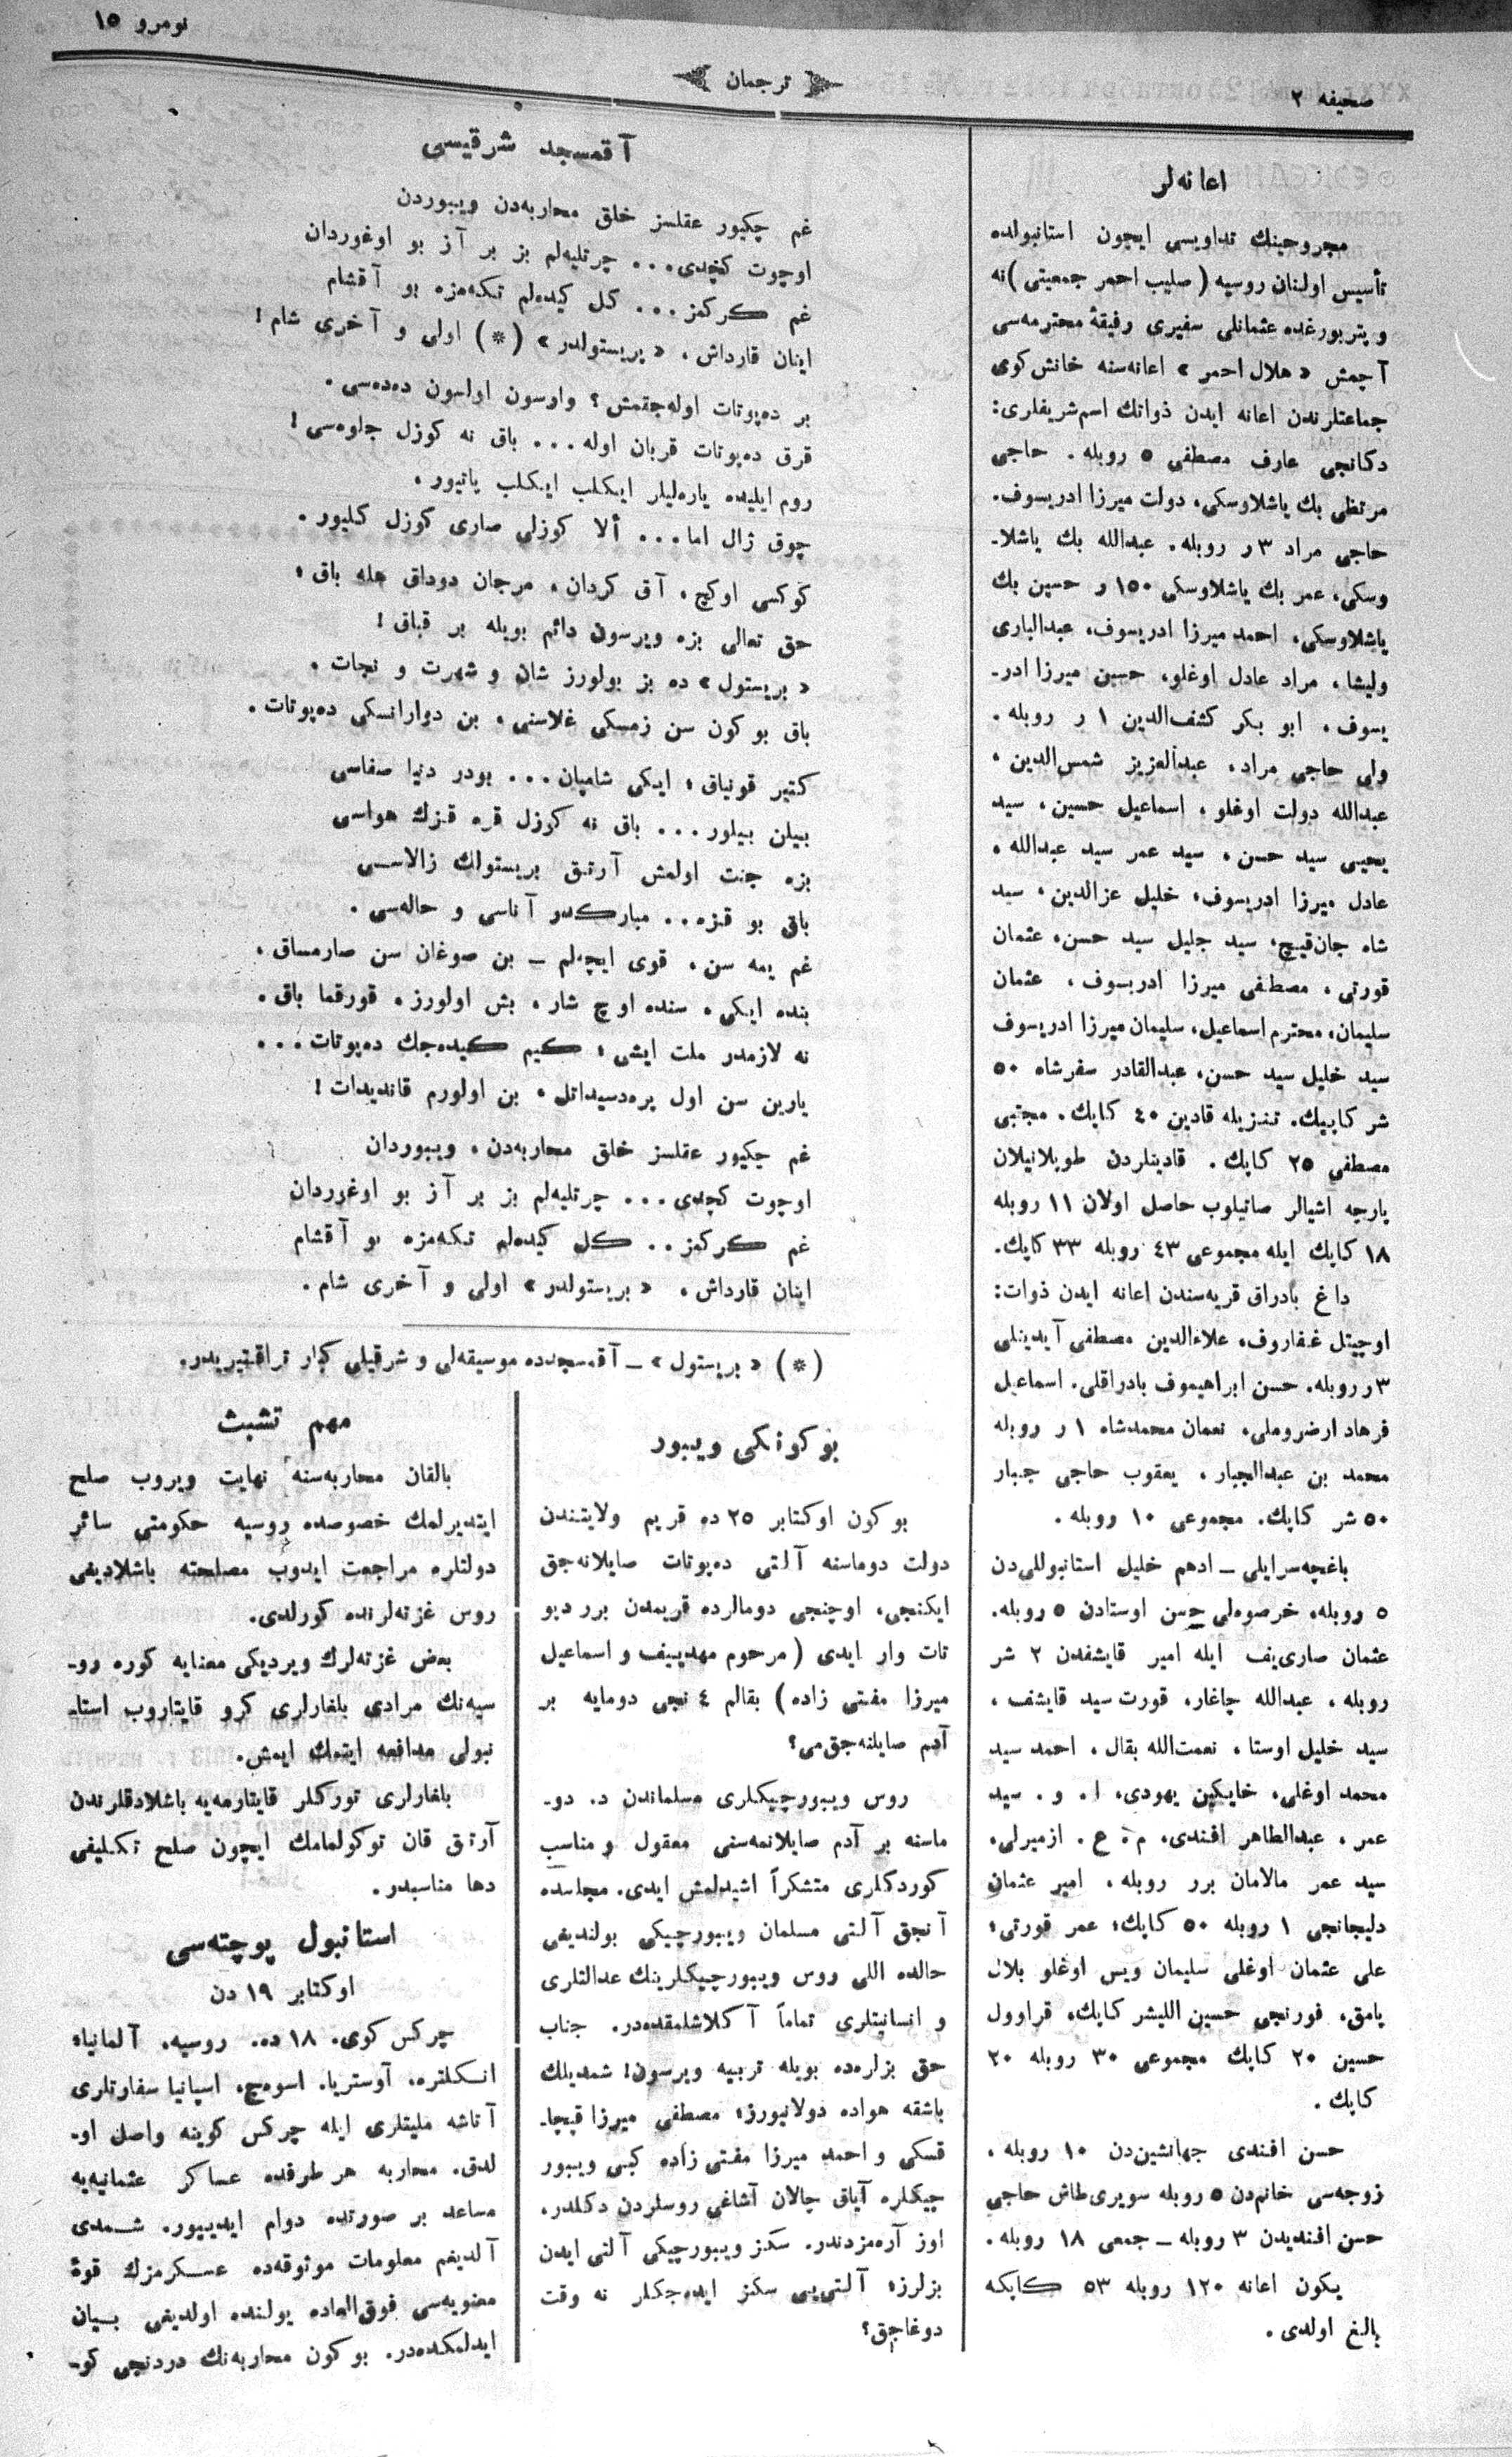 صحیفه ٢
ترجمان
نومرو ١٥
اعانه‌لر
مجروحینك تداویسی ایچون استانبولده
تأسیس اولنان روسیه (صلیب احمر جمعیتی) نه
و پتربورغده عثمانلی سفیری رفیقهٔ محترمه‌سی
آچمش «هلال احمر» اعانه‌سنه خانش کوی
جماعتلرندن اعانه ایدن ذواتك اسم شریفلری:
دکانجی عارف مصطفی ٥ روبله. حاجی
مرتظی بك یاشلاوسکی، دولت میرزا ادریسوف.
حاجی مراد ٣ ر روبله. عبدالله بك یاشلا-
وسکی، عمر بك یاشلاوسکی ١٥٠ ر حسین بك
یاشلاوسکی، احمد میرزا ادریسوف، عبدالباری
ولیشا، مراد عادل اوغلو، حسین میرزا ادر-
یسوف، ابو بکر کشف‌الدین ١ ر روبله.
ولی حاجی مراد، عبدالعزیز شمس‌الدین،
عبدالله دولت اوغلو، اسماعیل حسین، سید
یحیی سید حسن، سید عمر سید عبدالله،
عادل میرزا ادریسوف، خلیل عزالدین، سید
شاه جان‌قیچ، سید جلیل سید حسن، عثمان
قورتی، مصطفی میرزا ادریسوف، عثمان
سلیمان، محترم اسماعیل، سلیمان میرزا ادریسوف
سید خلیل سید حسن، عبدالقادر سفرشاه ٥٠
شر کاپیك. تنزیله قادین ٤٠ کاپك. مجتبی
مصطفی ٢٥ کاپك. قادینلردن طوپلانیلان
پارچه اشیالر صاتیلوب حاصل اولان ١١ روبله
١٨ کاپك ایله مجموعی ٤٣ روبله ٣٣ کاپك.
داغ بادراق قریه‌سندن اعانه ایدن ذوات:
اوجیتل غفاروف، علاءالدین مصطفی آیدینلی
٣ ر روبله. حسن ابراهیموف بادراقلی. اسماعیل
فرهاد ارضروملی، نعمان محمدشاه ١ ر روبله
محمد بن عبدالجبار، یعقوب حاجی جبار
٥٠ شر کاپك. مجموعی ١٠ روبله.
باغچه‌سرایلی ــ ادهم خلیل استانبوللی‌دن
٥ روبله، خرصوه‌لی حسن اوستادن ٥ روبله.
عثمان صاری‌یف ایله امیر قایشفدن ٢ شر
روبله، عبدالله چاغار، قورت سید قایشف،
سید خلیل اوستا، نعمت‌الله بقال، احمد سید
محمد اوغلی، خایکین یهودی، ا. و. سید
عمر، عبدالطاهر افندی، م. ع. ازمیرلی،
سید عمر مالامان برر روبله، امیر عثمان
دلیجانجی ١ روبله ٥٠ کاپك؛ عمر قورتی؛
علی عثمان اوغلی سلیمان ویس اوغلو بلال
پامق، فورنجی حسین اللیشر کاپك، قراوول
حسین ٢٠ کاپك مجموعی ٣٠ روبله ٢٠
کاپك.
حسن افندی جهانشین‌دن ١٠ روبله،
زوجه‌سی خانم‌دن ٥ روبله سویری‌طاش حاجی
حسن افندیدن ٣ روبله ــ جمعی ١٨ روبله.
یکون اعانه ١٢٠ روبله ٥٣ کاپکه
بالغ اولدی.
آقمسجد شرقیسی
غم چکیور عقلسز خلق محاربه‌دن ویبوردن
اوچوت کچدی... چرتلیه‌لم بز بر آز بو اوغوردان
غم کرکمز... کل کیده‌لم تکه‌مزه بو آقشام
اینان قارداش، «بریستولدر» (*) اولی و آخری شام!
بر ده‌پوتات اوله‌جقمش؟ وارسون اولسون ده‌ده‌سی.
قرق ده‌پوتات قربان اوله... باق نه کوزل جلوه‌سی!
روم ایلیده یاره‌لیلر ایکلب ایکلب یاتیور،
چوق زال اما... ألا کوزلی صاری کوزل کلیور.
کوکسی اوکچ، آق کردان، مرجان دوداق هله باق؛
حق تعالی بزه ویرسون دائم بویله بر قباق!
«بریستول» ده بز بولورز شان و شهرت و نجات.
باق بو کون سن زمسکی غلاسنی، بن دوارانسکی ده‌پوتات.
کتیر قونیاق؛ ایکی شامپان... بودر دنیا صفاسی
بیلن بیلور... باق نه کوزل قره قزك هواسی
بزه جنت اولمش آرتق بریستولك زالاسی
باق بو قزه... مبارکدر آناسی و حاله‌سی.
غم یمه سن، قوی ایچه‌لم ــ بن صوغان سن صارمساق،
بنده ایکی، سنده اوچ شار، بش اولورز، قورقما باق.
نه لازمدر ملت ایشی؛ کیم کیده‌جك ده‌پوتات...
یارین سن اول پره‌دسیداتل، بن اولورم قاندیدات!
غم چکیور عقلسز خلق محاربه‌دن، ویبوردان
اوچوت کچدی... چرتلیه‌لم بز بر آز بو اوغوردان
غم کرکمز.. کل کیده‌لم تکه‌مزه بو آقشام
اینان قارداش، «بریستولدر» اولی و آخری شام.
(*) «بریستول» ــ آقمسجدده موسیقه‌لی و شرقیلی کبار تراقتیریدر.
بو کونکی ویبور
بو کون اوکتابر ٢٥ ده قریم ولایتندن
دولت دوماسنه آلتی ده‌پوتات صایلانه‌جق
ایکنجی، اوچنجی دومالرده قریمدن برر دپو
تات وار ایدی (مرحوم مهدییف و اسماعیل
میرزا مفتی زاده) بقالم ٤ نجی دومایه بر
آدم صایلنه‌جق‌می؟
روس ویبورچیکلری مسلماندن د. دو-
ماسنه بر آدم صایلانمه‌سنی معقول و مناسب
کوردکلری متشکراً اشیدلمش ایدی. مجلسده
آنجق آلتی مسلمان ویبورچیکی بولندیغی
حالده اللی روس ویبورچیکلرینك عدالتلری
و انسانیتلری تماماً آکلاشلمقده‌در. جناب
حق بزلره‌ده بویله تربیه ویرسون! شمدیلك
باشقه هواده دولانیورز؛ مصطفی میرزا قپچا-
قسکی و احمد میرزا مفتی زاده کبی ویبور
چیکلره آیاق چالان آشاغی روسلردن دکلدر،
اوز آره‌مزدندر. سکز ویبورچیکی آلتی ایدن
بزلرز؛ آلتی‌یی سکز ایده‌جکلر نه وقت
دوغاجق؟
مهم تشبث
بالقان محاربه‌سنه نهایت ویروب صلح
ایتدیرلمك خصوصده روسیه حکومتی سائر
دولتلره مراجعت ایدوب مصلحته باشلادیغی
روس غزته‌لرنده کورلدی.
بعض غزته‌لرك ویردیکی معنایه کوره رو-
سیه‌نك مرادی بلغارلری کرو قایتاروب استا-
نبولی مدافعه ایتمك ایمش.
بلغارلری تورکلر قایتارمه‌یه باشلادقلرندن
آرتق قان توکولمامك ایچون صلح تکلیفی
دها مناسبدر.
استانبول پوچته‌سی
اوکتابر ١٩ دن
چرکس کوی. ١٨ ده. روسیه، آلمانیا؛
انکلتره، آوستریا. اسوه‌چ، اسپانیا سفارتلری
آتاشه ملیتلری ایله چرکس کوینه واصل او-
لدق. محاربه هر طرفده عساکر عثمانیه‌یه
مساعد بر صورتده دوام ایدییور. شمدی
آلدیغم معلومات موثوقه‌ده عسکرمزك قوهٔ
معنویه‌سی فوق‌العاده یولنده اولدیغی بیان
ایدلمکده‌در. بو کون محاربه‌نك دردنجی کو-